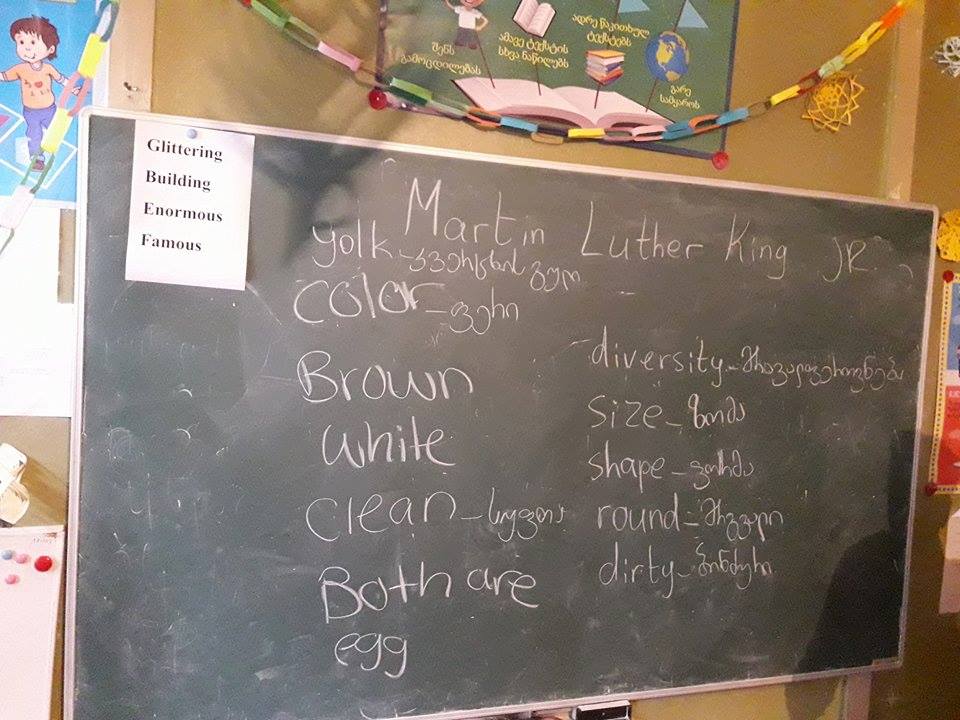 შენს გამოცდილებას
ამავე ტექსტის სხვა ნაწილებს
ადრე წაკითხულ ტექსტებს
გარე სამყაროს
Glittering
Building
Enormous
Famous
Martin Luther King JR.
yolk - კვერცხის გული
color - ფერი
Brown
white
clean - სუფთა
Both are
egg
diversity - მრავალფეროვნება
size - ზომა
shape - ფორმა
round - მრგვალი
dirty - ბინძური